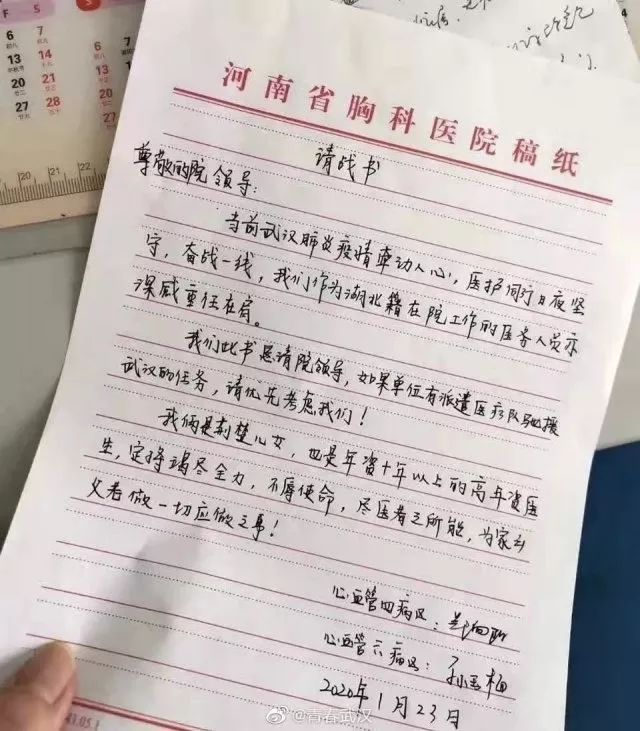 河南省胸科医院稿纸
请战书
尊敬的院领导:
当前武汉肺炎疫情牵动人心,医护同行日夜坚
守,奋战一线,我们作为湖北籍在院工作的医务人员亦
深感重任在肩。
我们此书恳请院领导,如果单位有派遣医疗队驰援
武汉的任务,请优先考虑我们!
我俩是荆楚儿女,也是年资十年以上的高年资医
生,定将竭尽全力,不辱使命,尽医者之所能,为家乡
父老做一切应做之事!
心血管四病区:
心血管六病区:孙玉梅
2020年1月23日
@青春武汉
F S
6 7
13 14
20 21
27 28
20 21 22